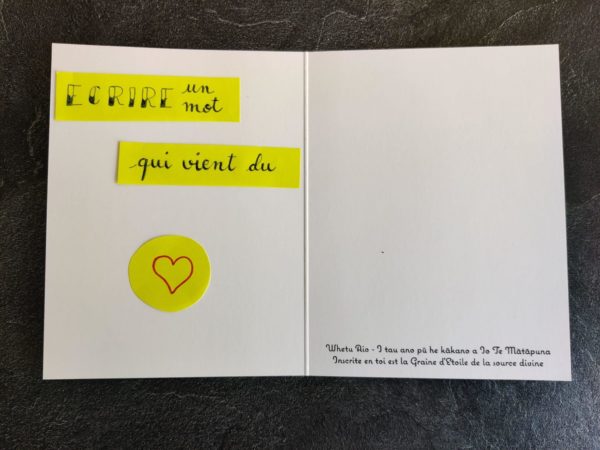 ECRIRE un
mot
qui vient du
Whetu Rio - I tau ano pū he kākano a Io Te Mātāpuna
Inscrite en toi est la Graine d'Etoile de la source divine